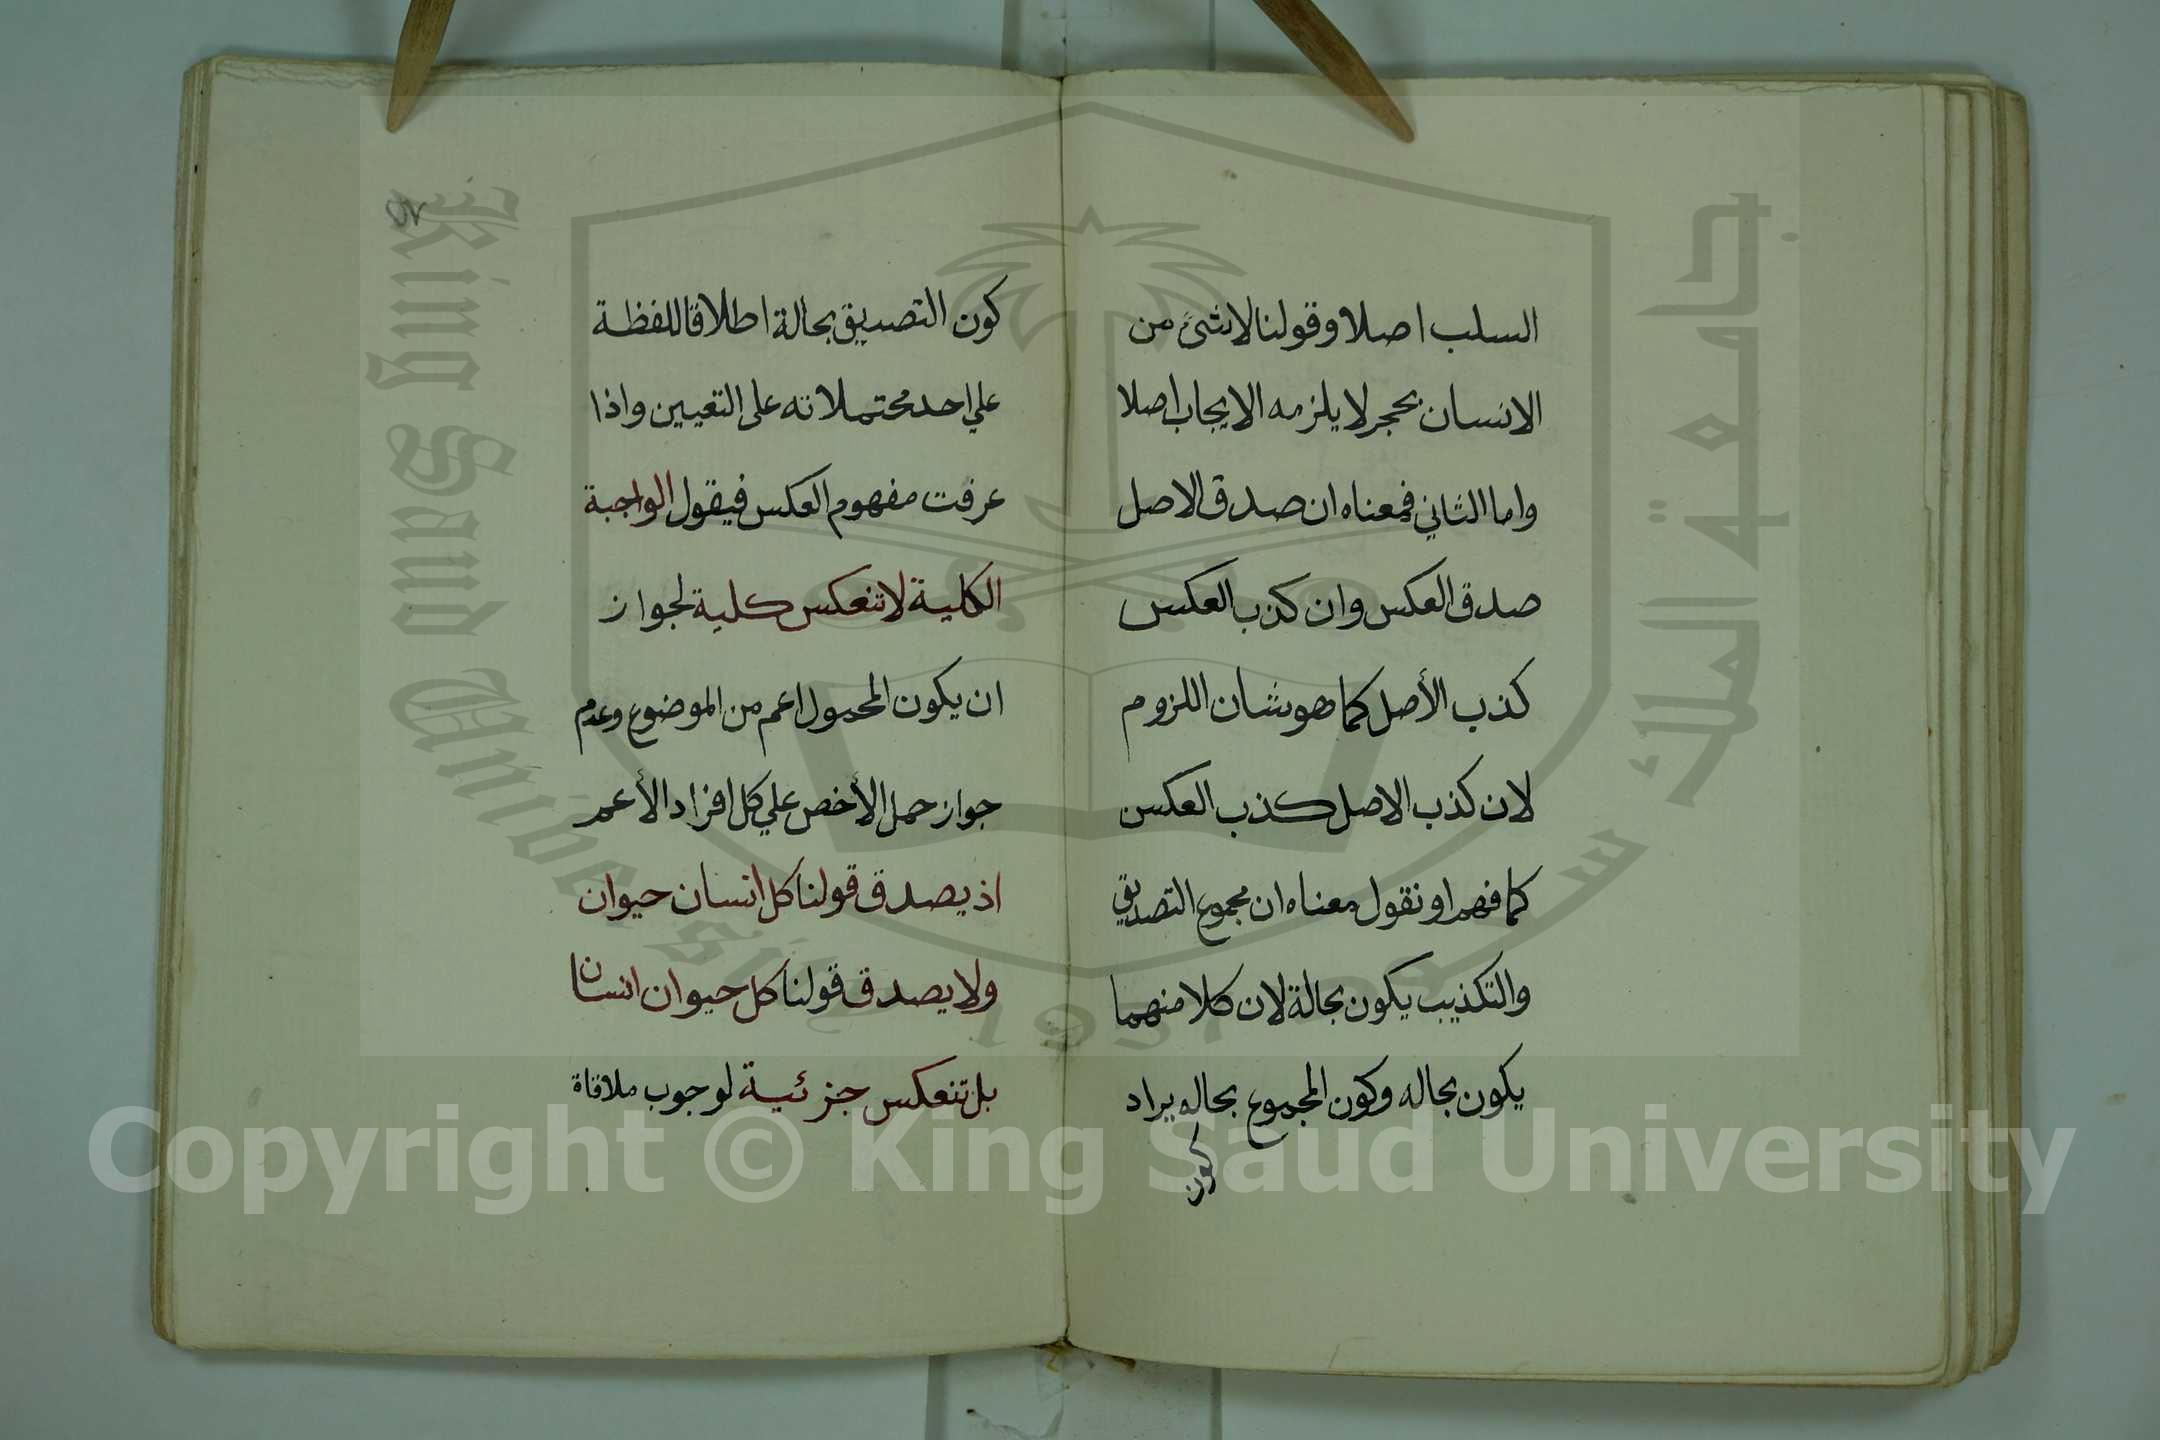 السلب اصلا وقولنا لا شئ من
الانسان بحجر لا يلزمه الايجاب اصلا
واما الثاني فمعناه ان صدق الاصل
صدق العكس وان كذب العكس
كذب الأصل كما هو شان اللزوم
لان كذب الاصل كذب العكس
كما فهم او نقول معناه ان مجموع التصديق
والتكذيب يكون بحالة لان كلا منهما
يكون بحاله وكون المجموع بحاله يراد
كون
كون التصديق بحالة اطلاقا للفظة
علي احد محتملاته على التعيين واذا
عرفت مفهوم العكس فيقول الواجبة
الكلية لا تنعكس كلية لجواز
ان يكون المحمول اعم من الموضوع وعدم
جواز حمل الأخص علي كل افراد الأعم
اذ يصدق قولنا كل انسان حيوان
ولا يصدق قولنا كل حيوان انسان
بل تنعكس جزئية لوجوب ملاقاة
King Saud University
جامعة الملك سعود
1957
Copyright © King Saud University